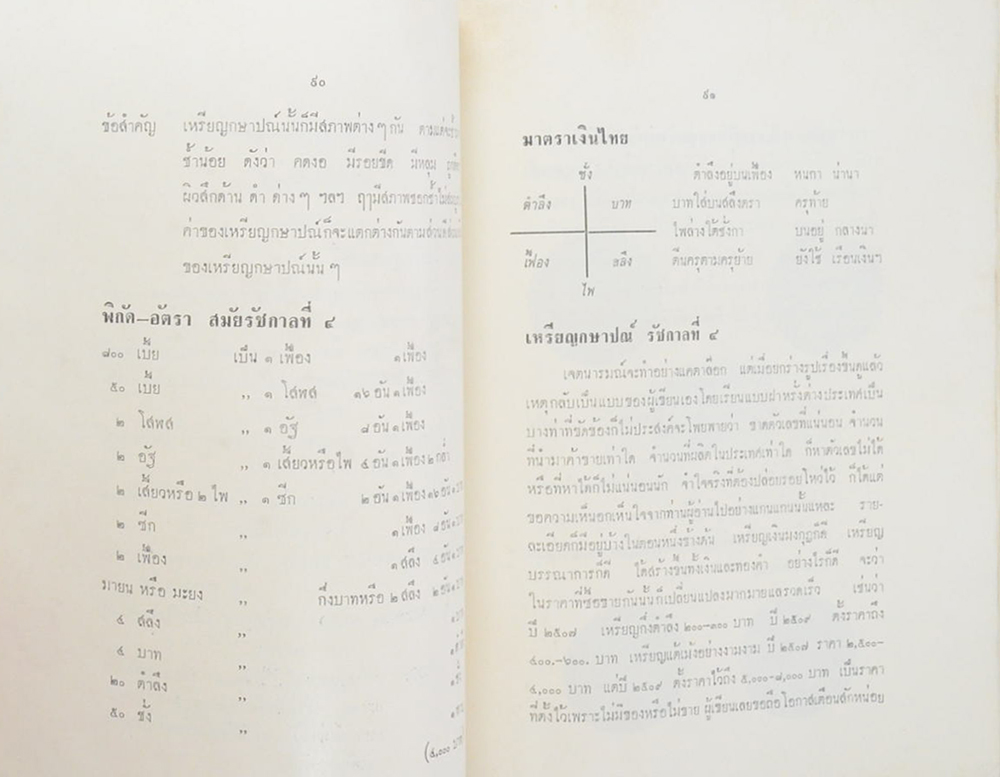 ๙๐
ข้อสำคัญ เหรียญกษาปณ์นั้นก็มีสภาพต่างๆกัน ตามแต่จะ
ช้ำน้อย ดังว่า คดงอ มีรอยขีด มีหลุม
ผิวสึกด้าน ดำ ด่างๆ ฯลฯ ฤามีสภาพชอกช้ำ
ค่าของเหรียญกษาปณ์ก็จะแตกต่างกันตามส่วน
ของเหรียญกษาปณ์นั้น ๆ
พิกัด–อัตรา สมัยรัชกาลที่ ๔
๘๐๐ เบี้ย เป็น ๑ เฟื้อง ๑ เฟื้อง
๕๐ เบี้ย ,, ๑ โสฬส ๑๖ อัน ๑ เฟื้อง
๒ โสฬส ,, ๑ อัฐ ๘ อัน ๑ เฟื้อง
๒ อัฐ ,, ๑ เสี้ยวหรือไพ ๔ อัน ๑ เฟื้อง
๒ เสี้ยวหรือ ๒ ไพ ,, ๑ ซีก ๒ อัน ๑ เฟื้อง ๑๖ อัน
๒ ซีก ,, ๑ เฟื้อง ๘ อัน
๒ เฟื้อง ,, ๑ สลึง ๔ อัน
มายน หรือ มะยง ,, กึ่งบาทหรือ ๒ สลึง ๒ อัน
๔ สลึง ,,
๔ บาท ,,
๒๐ ตำลึง ,,
๕๐ ชั่ง ,,
(๔,๐๐๐ บาท
๙๑
มาตราเงินไทย
ชั่ง
ตำลึง บาท
เฟื้อง สลึง
ไพ
ตำลึงอยู่บนเฟื้อง หนกา น่านา
บาทใส่บนสลึงตรา ครุท้าย
ไพล่างใต้ชั่งกา บนอยู่ กลางนา
ตีนครุตามครุย้าย ยังใช้ เรือนเงินฯ
เหรียญกษาปณ์ รัชกาลที่ ๔
เจตนารมณ์จะทำอย่างแคตาลอก แต่เมื่อยกร่างรูปเรื่องขึ้นดูแล้ว
เหตุกลับเป็นแบบของผู้เขียนเองโดยเรียนแบบฝาหรั่งต่างประเทศเป็น
บางท่าที่ขัดข้องก็ไม่ประสงค์จะโพยพายว่า ขาดตัวเลขที่แน่นอน จำนวน
ที่นำมาค้าขายเท่าใด จำนวนที่ผลิตในประเทศเท่าใด ก็หาตัวเลขไม่ได้
หรือที่หาได้ก็ไม่แน่นอนนัก จำใจจริงที่ต้องปล่อยรอยโหว่ไว้ ก็ได้แต่
ขอความเห็นอกเห็นใจจากท่านผู้อ่านไปอย่างแกนแกนนั้นแหละ ราย-
ละเอียดก็มีอยู่บ้างในตอนหนึ่งข้างต้น เหรียญเงินมงกุฎก็ดี เหรียญ
บรรณาการก็ดี ได้สร้างขึ้นทั้งเงินและทองคำ อย่างไรก็ดี จะว่า
ในราคาที่ซื้อขายกันนั้นก็เปลี่ยนแปลงมากมายและรวดเร็ว เช่นว่า
ปี ๒๕๐๗ เหรียญกึ่งตำลึง ๒๐๐–๓๐๐ บาท ปี ๒๕๐๙ ตั้งราคาถึง
๔๐๐.–๖๐๐. บาท เหรียญแต้เม้งอย่างงามงาม ปี ๒๕๐๗ ราคา ๒,๕๐๐–
๔,๐๐๐ บาท แต่ปี ๒๕๐๙ ตั้งราคาไว้ถึง ๕,๐๐๐–๘,๐๐๐ บาท เป็นราคา
ที่ตั้งไว้เพราะไม่มีของหรือไม่ขาย ผู้เขียนเลยขอถือโอกาสเตือนสักหน่อย